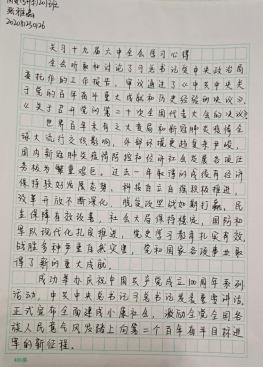 关于十九届六中全会学习心得
全会听取和讨论了习总书记受中央政治局
委托作的工作报告，审议通过了《中共中央关
于党的百年奋斗重大成就和历史经验的决议》，
《关于召开党的第二十次全国代表大会的决议》
世界百年未有之大变局和新冠肺炎疫情全
球大流行交织影响，外部环境更趋复杂严峻，
国内新冠肺炎疫情防控和经济社会发展各项任
务极为繁重艰巨。过去一年取得的成绩有经济
保持较好发展态势，科技自立自强积极推进，
改革开放不断深化，脱贫攻坚战如期打赢，民
生保障有效改善，社会大局保持稳定，国防和
军队现代化扎实推进，党史学习教育扎实有效，
战胜多种严重自然灾害，党和国家各项事业取
得了新的重大成就。
成功举办庆祝中国共产党成立100周年系列
活动，中共中央总书记习总书记发表重要讲话，
正式宣布全面建成小康社会，激励全党全国各
族人民意气风发踏上向第二个百年奋斗目标进
军的新征程。